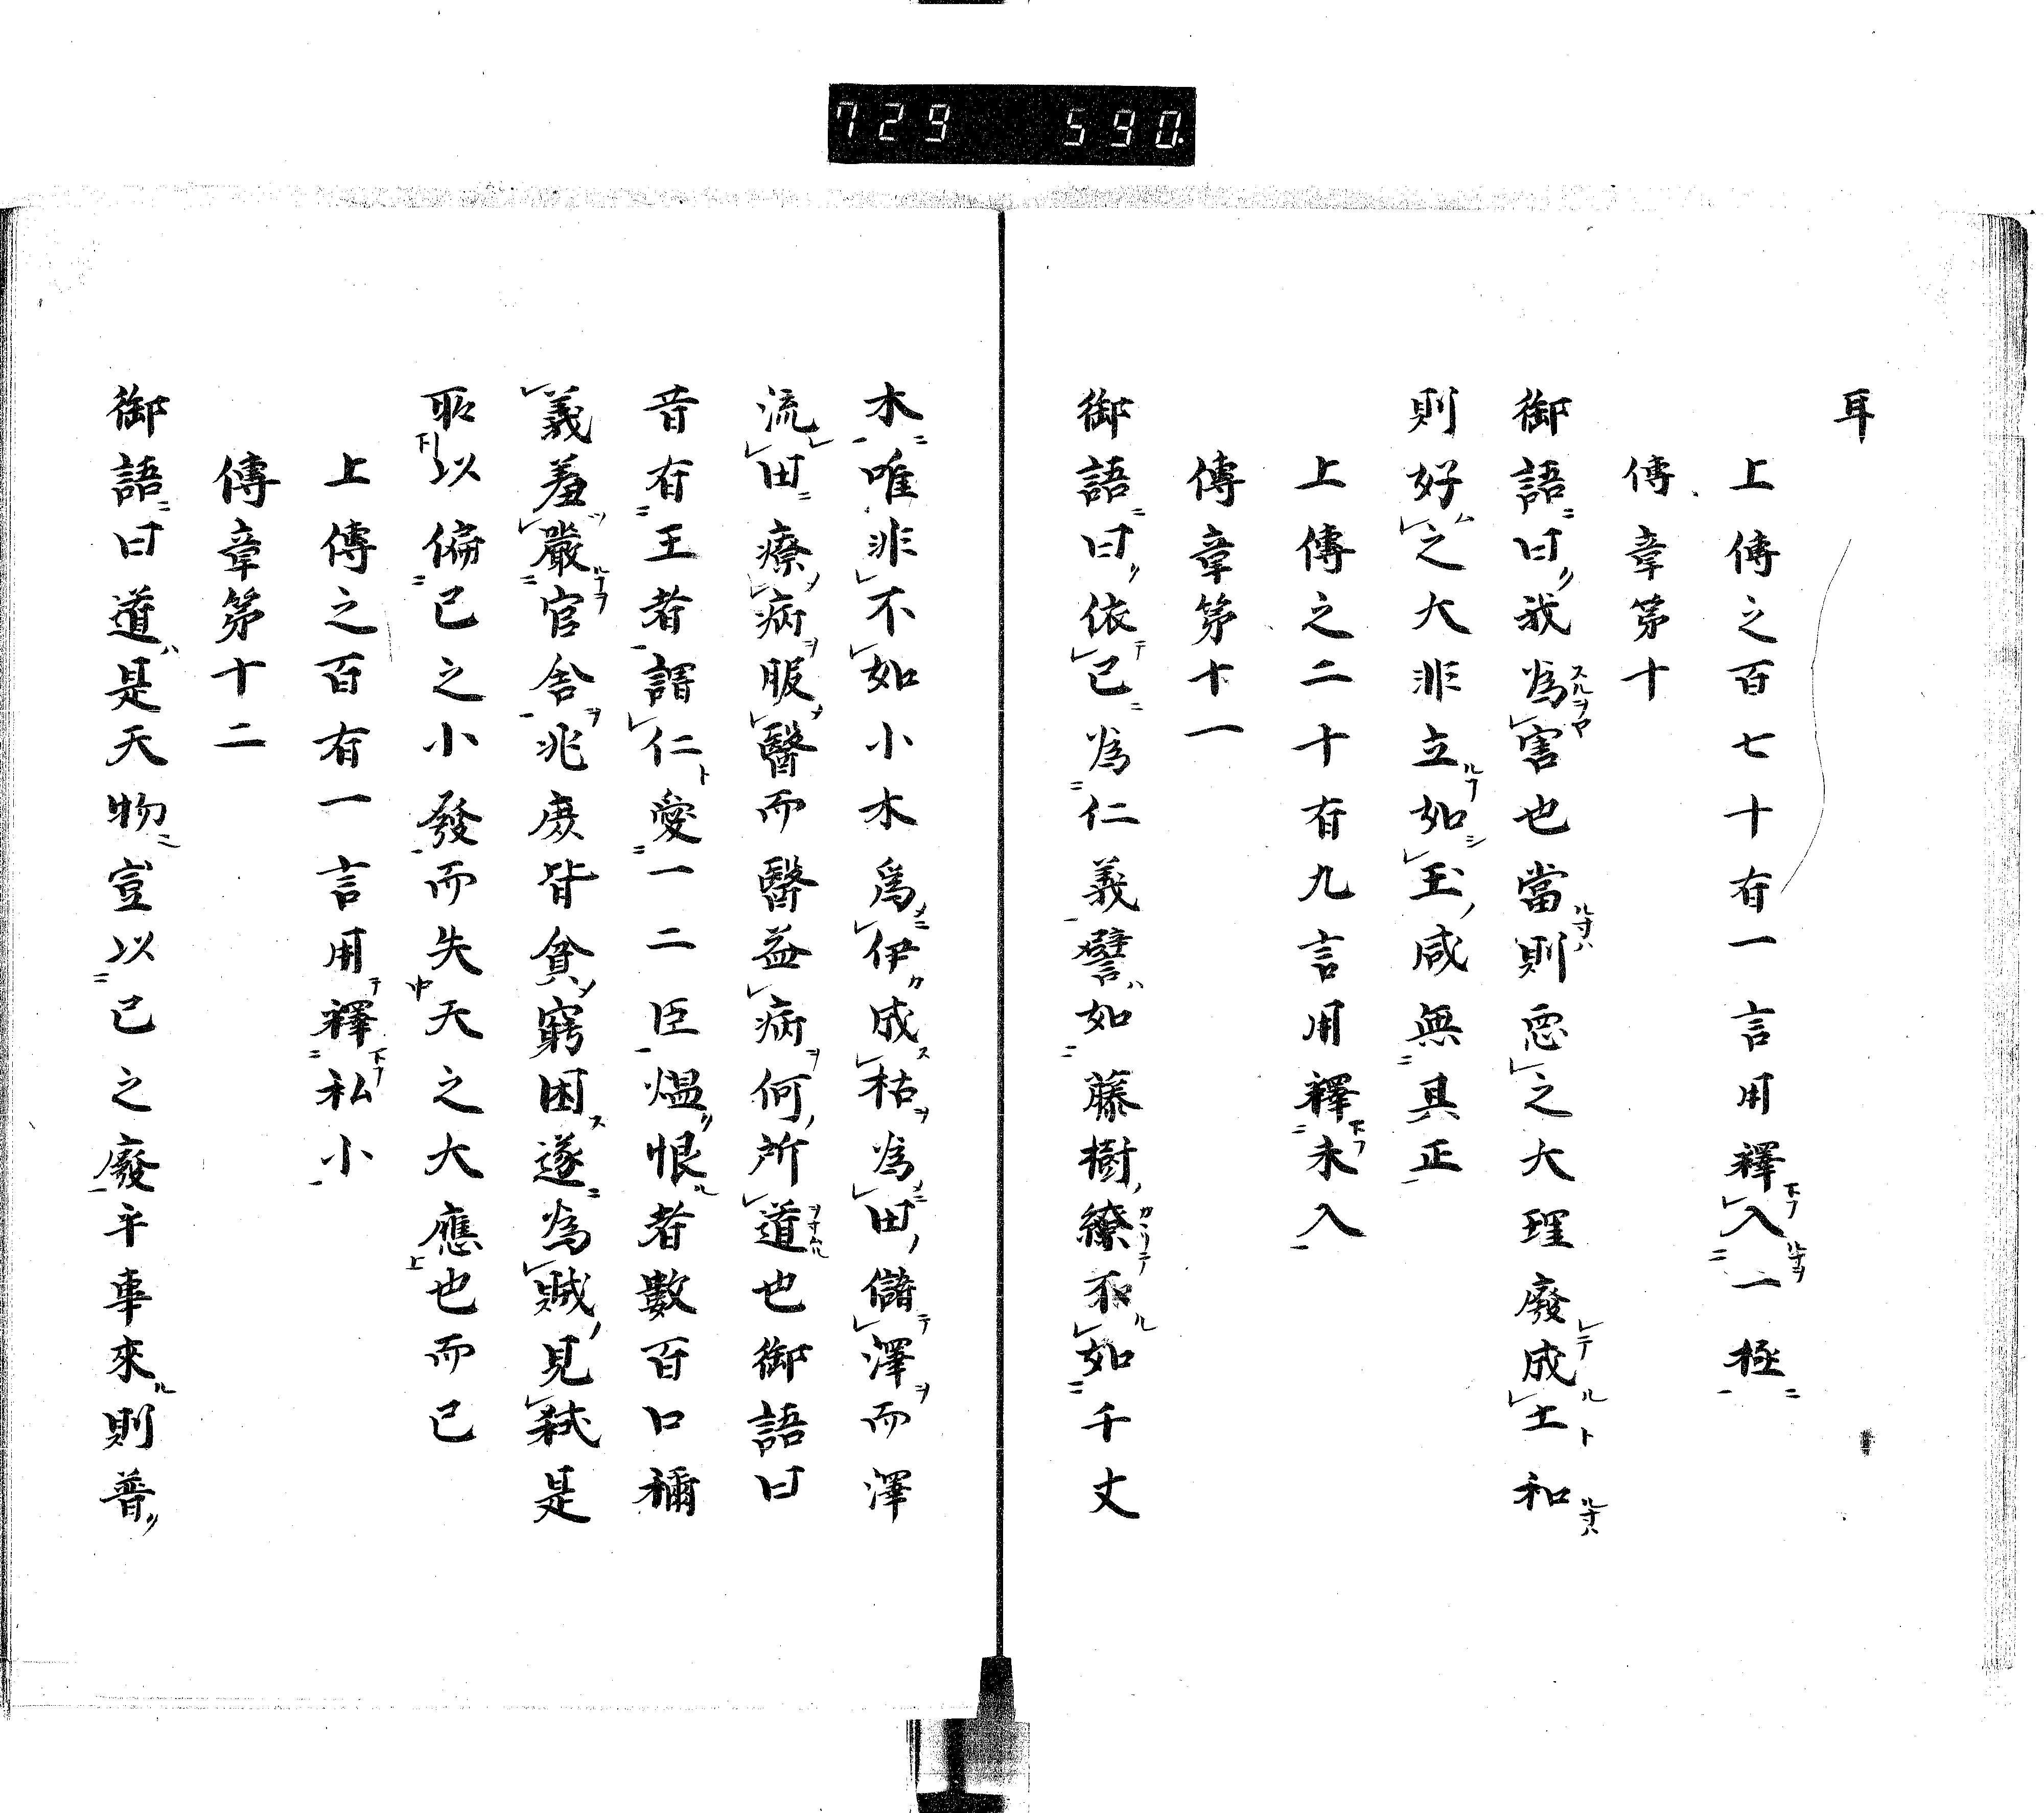 729 590.
耳
上傳之百七十有一言用釋入一極
傳章第十
御語曰我為害也當則惡之大理廢成土和
則好之大非立如玉咸無具正
上傳之二十有九言用釋未入
傳章第十一
御語曰依己為仁義譬如藤樹繚不如千丈
木唯非不如小木為伊成枯為田儲澤而澤
流田療病服醫而醫益病何所道也御語曰
昔有王者謂仁愛一二臣熅恨者數百口稱
義羞嚴官舍兆庶皆貧窮困遂為賊見弒是
所以偏己之小發而失天之大應也而已
上傳之百有一言用釋私小
傳章第十二
御語曰道是天物豈以己之廢乎事來則普